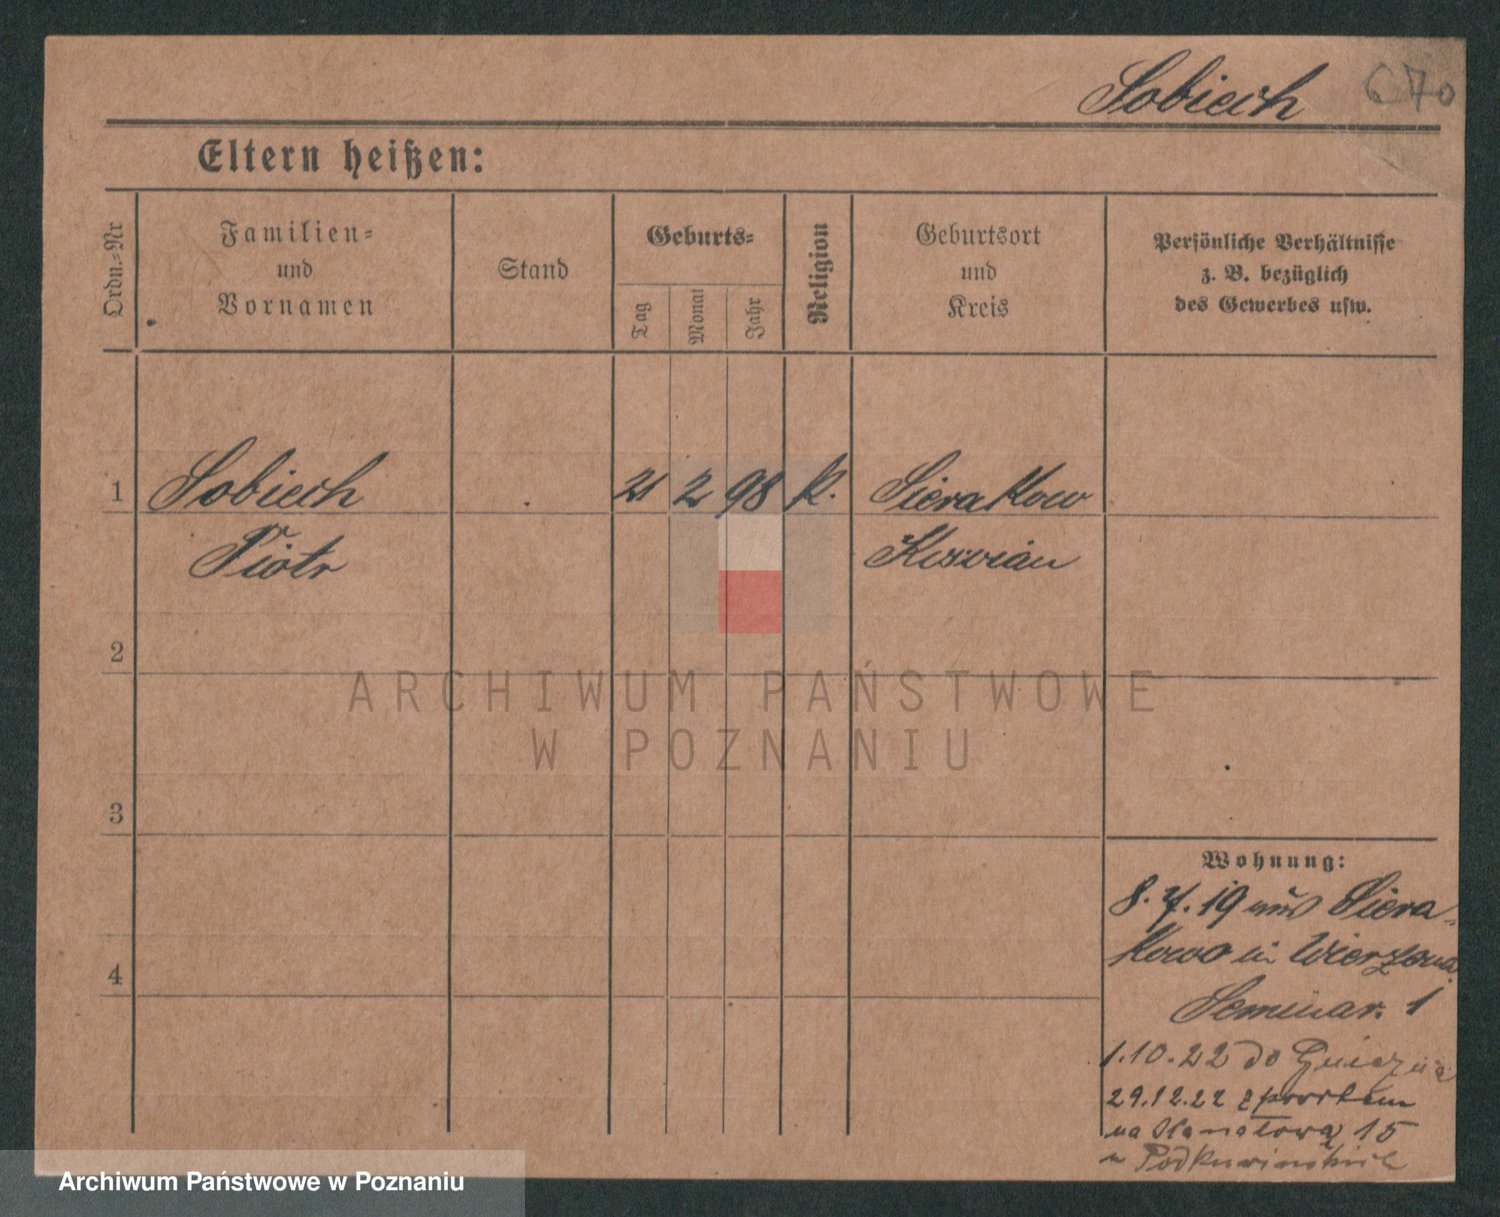 Sobiech 670
Eltern heißen:
Ordn.-Nr
Familien-
und
Vornamen
Stand
Geburts-
Tag
Monat
Jahr
Religion
Geburtsort
und
Kreis
Persönliche Verhältnisse
z. B. bezüglich
des Gewerbes usw.
1 Sobiech 21 2 98 k. Sierakow
Piotr Kosvian
2
ARCHIWUM PAŃSTWOWE
W POZNANIU
3
Wohnung:
8.7.19 aus Siera-
kowo in
Seminar. 1
4
1.10.22 do Gniezna
29.12.22 z powrotem
na 15
u
Archiwum Państwowe w Poznaniu